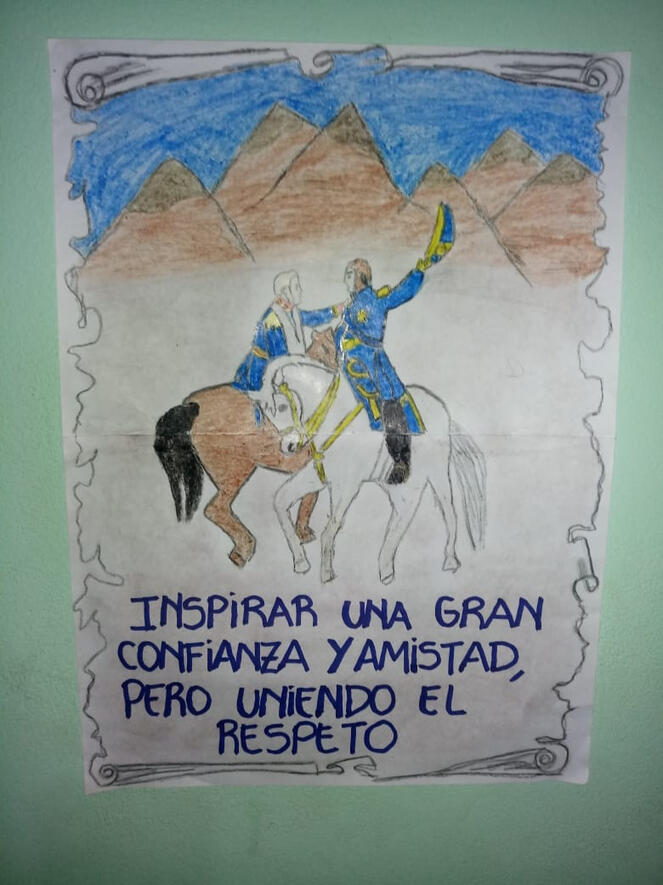 INSPIRAR UNA GRAN
CONFIANZA Y AMISTAD,
PERO UNIENDO EL
RESPETO